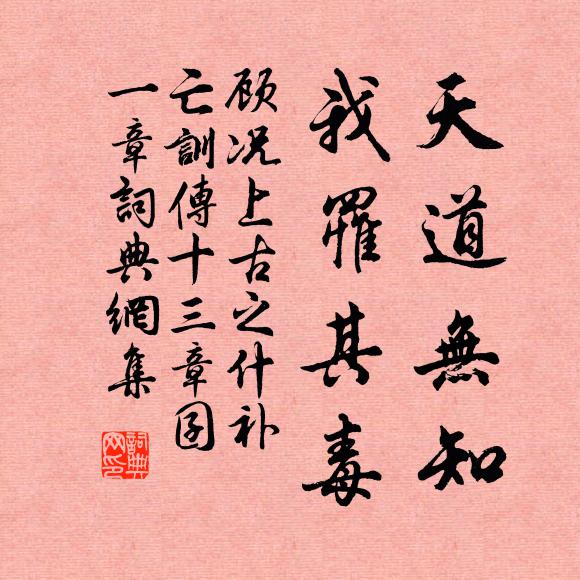 天道無知
我罹其毒
顾况上古之什补
亡訓傳十三章囝
一章詞典網集
詞典
网印